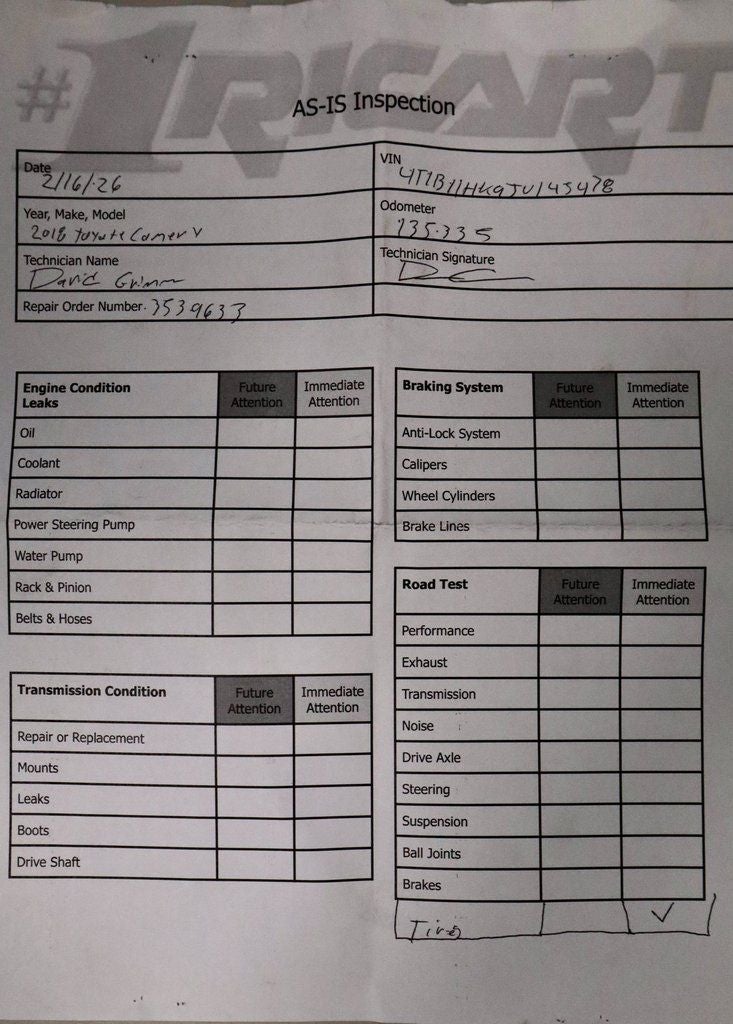 #1RICART
AS-IS Inspection
Date
2/16/.26
VIN
4T1B11HK9JU145478
Year, Make, Model
2018 Toyota Camery
Odometer
135.335
Technician Name
David Grimm
Technician Signature
Repair Order Number. 3539633
Engine Condition Leaks
Future Attention
Immediate Attention
Oil
Coolant
Radiator
Power Steering Pump
Water Pump
Rack & Pinion
Belts & Hoses
Transmission Condition
Future Attention
Immediate Attention
Repair or Replacement
Mounts
Leaks
Boots
Drive Shaft
Braking System
Future Attention
Immediate Attention
Anti-Lock System
Calipers
Wheel Cylinders
Brake Lines
Road Test
Future Attention
Immediate Attention
Performance
Exhaust
Transmission
Noise
Drive Axle
Steering
Suspension
Ball Joints
Brakes
Tires ✓